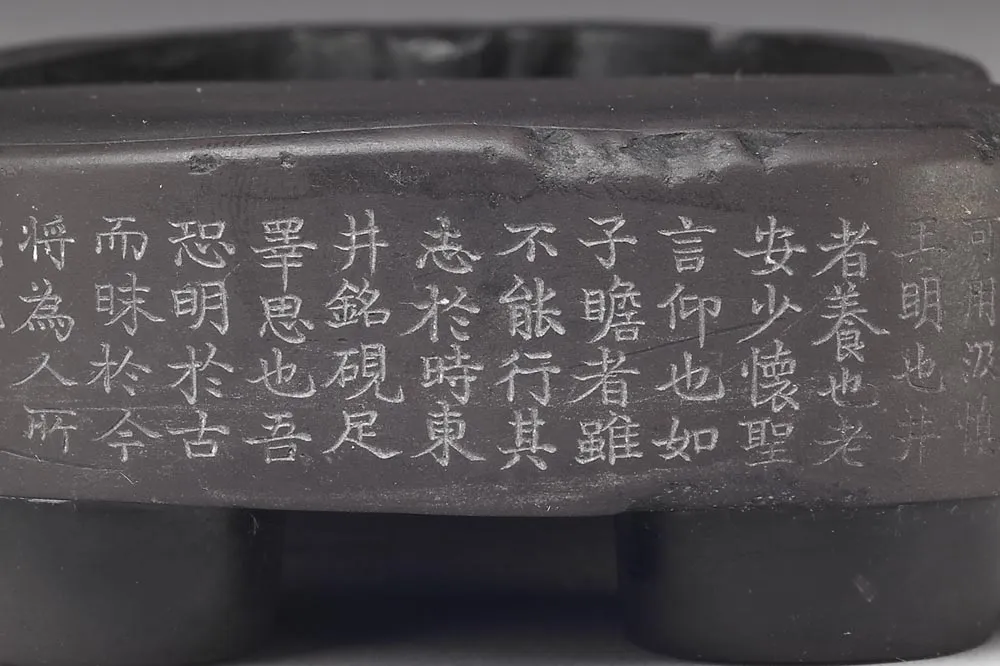 可用汲惟
王明也井
者養也老
安少懷聖
言仰也如
子瞻者雖
不能行其
志於時東
井銘硯足
睪思也吾
恐明於古
而昧於今
将為人所